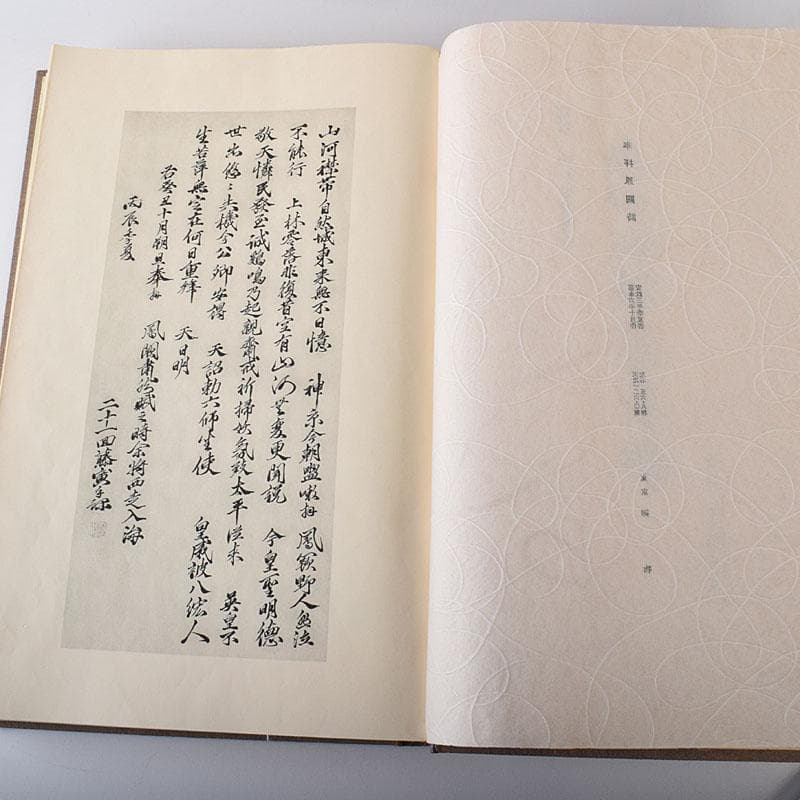 山河襟帶自然城東來無不日憶 神京今朝盥嗽拜 鳳闕野人悲泣
不能行 上林零落非復昔空有山河無變更聞説 今皇聖明德
敬天憐民發至誠鷄鳴乃起親齋戒祈掃妖氛致太平從來 英皇不
世出悠々失機今公卿安得 天詔勅六師坐使 皇威被八紘人
生若萍無定在何日重拜 天日明
右癸丑十月朔旦奉拜 鳳闕肅而賦之時余將西走入海
丙辰季夏 二十一回藤寅手録